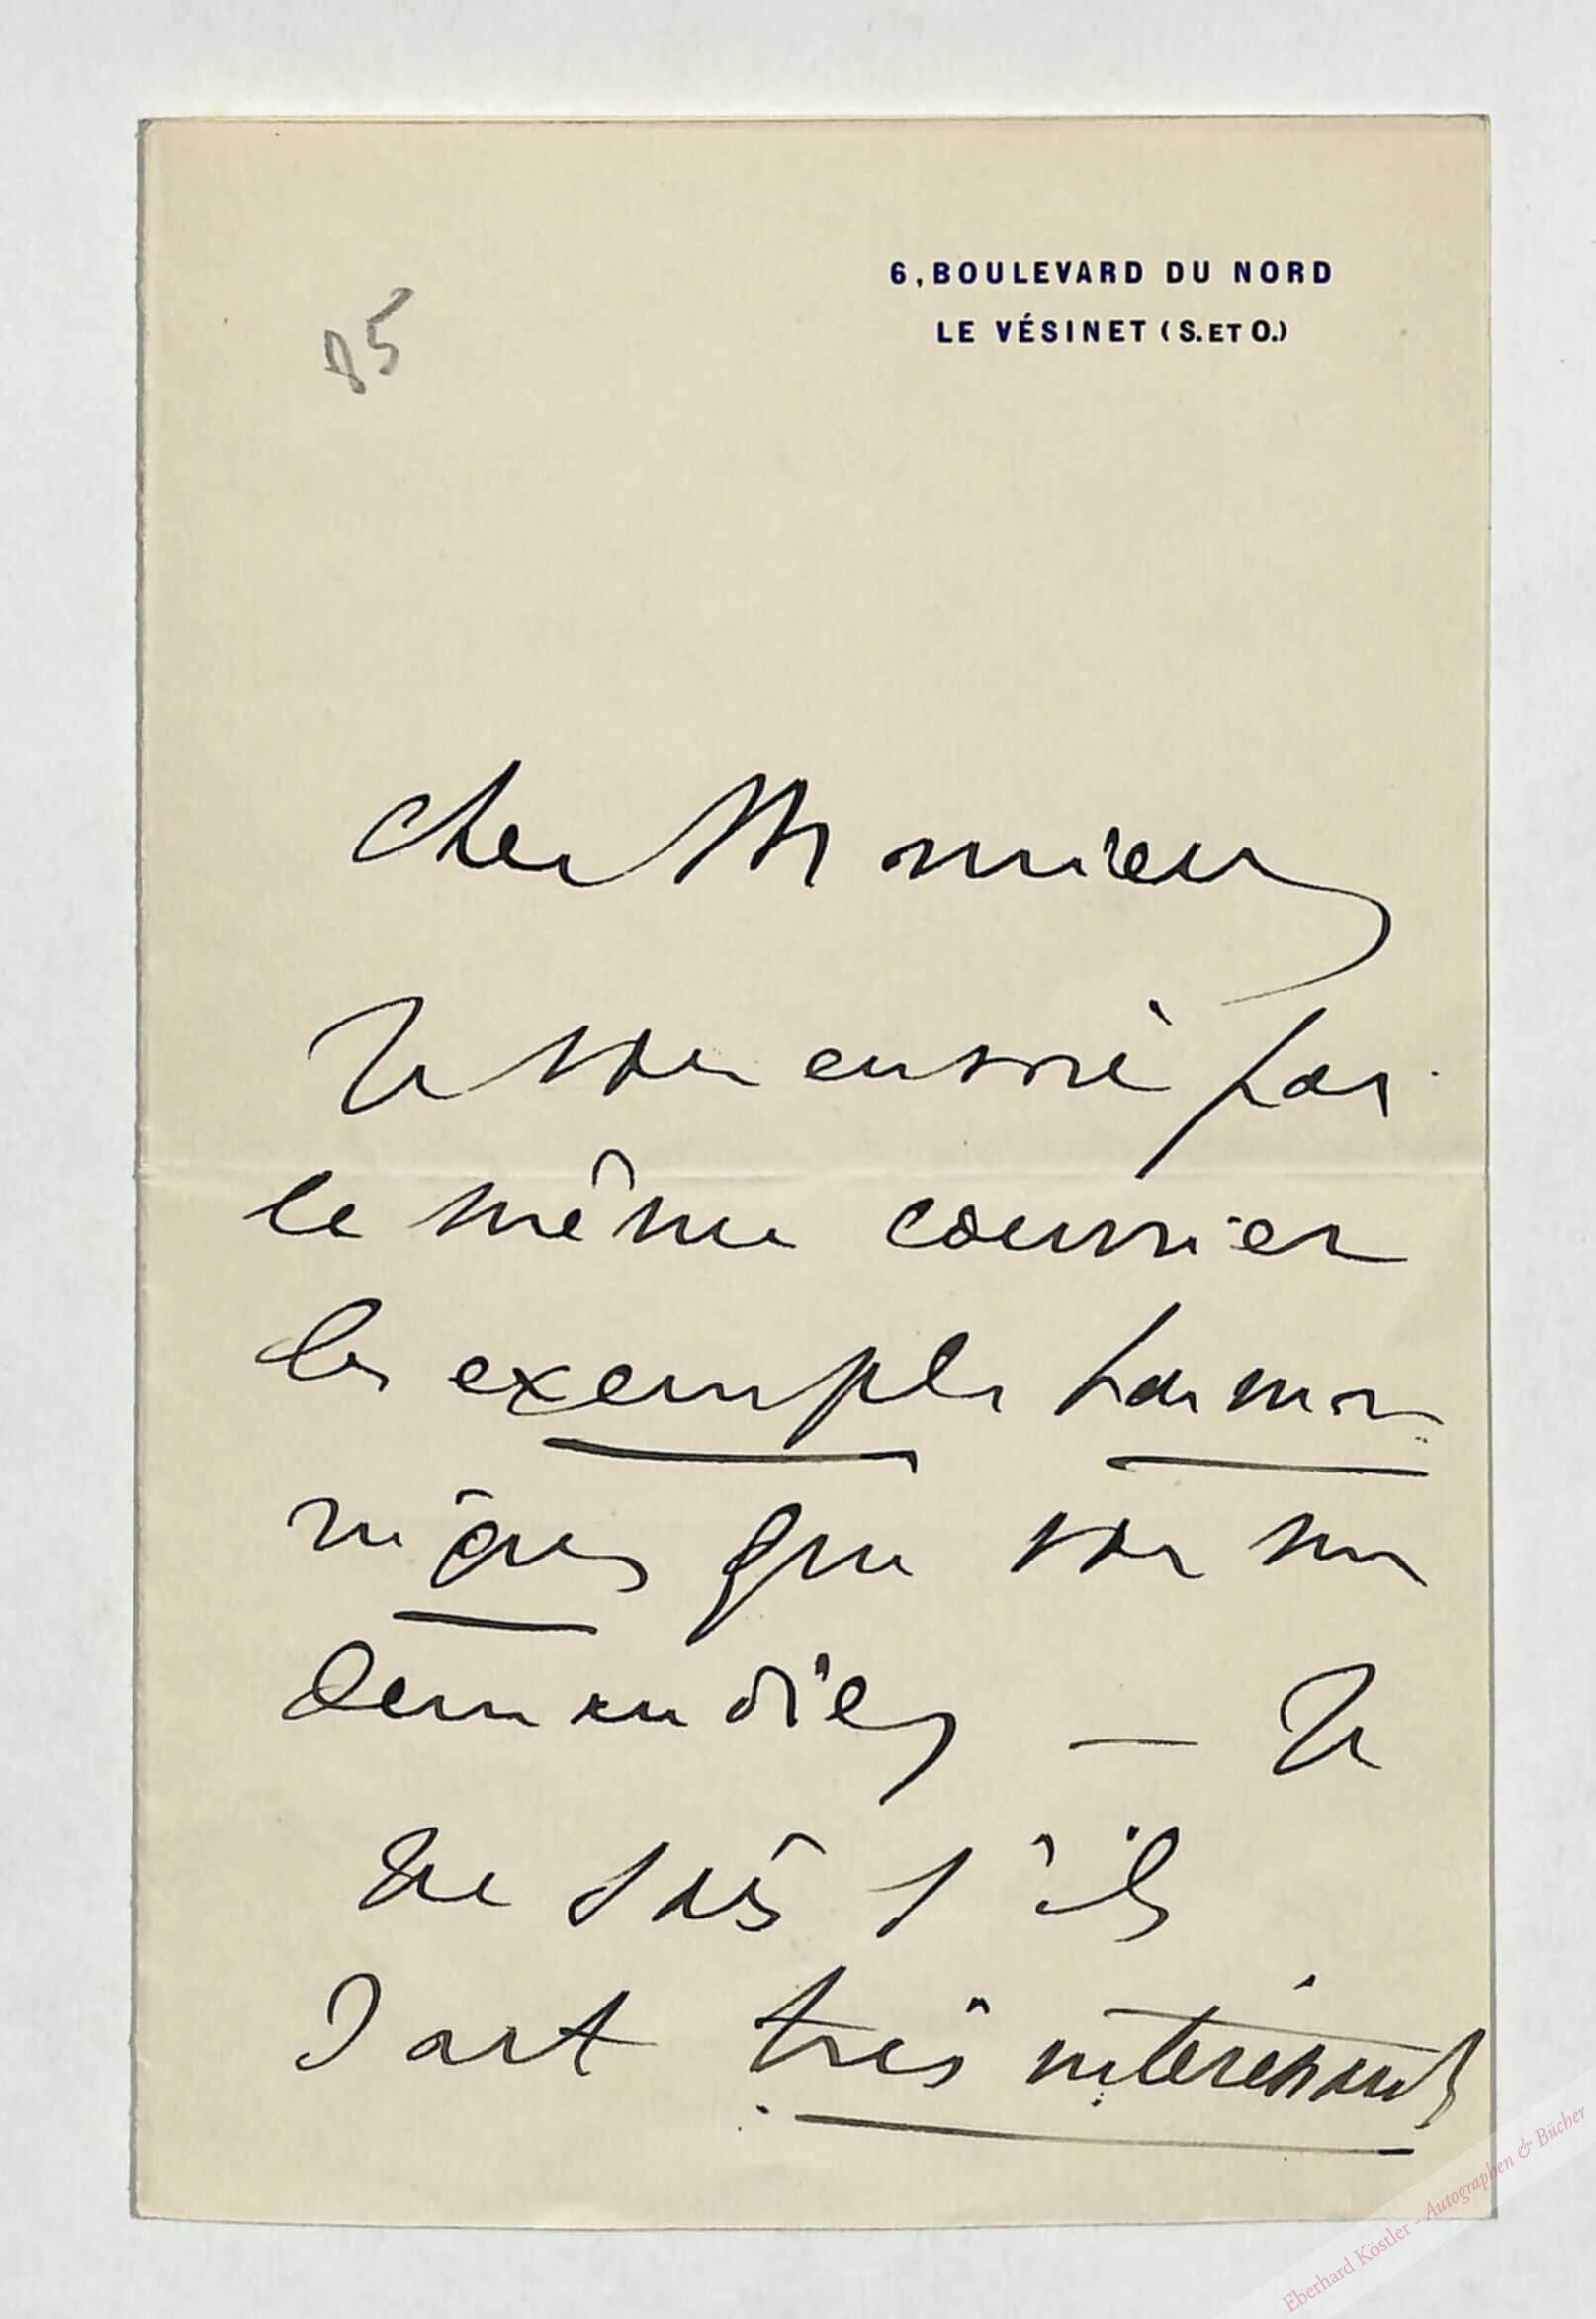 85
6, BOULEVARD DU NORD
LE VÉSINET (S. ET O.)
Cher Monsieur
Je vous envoie par
le même courrier
les exemples harmo
niques que vous me
demandiez — Je
ne sais s'ils
sont très intéressants
Eberhard Köstler - Autographen & Bücher